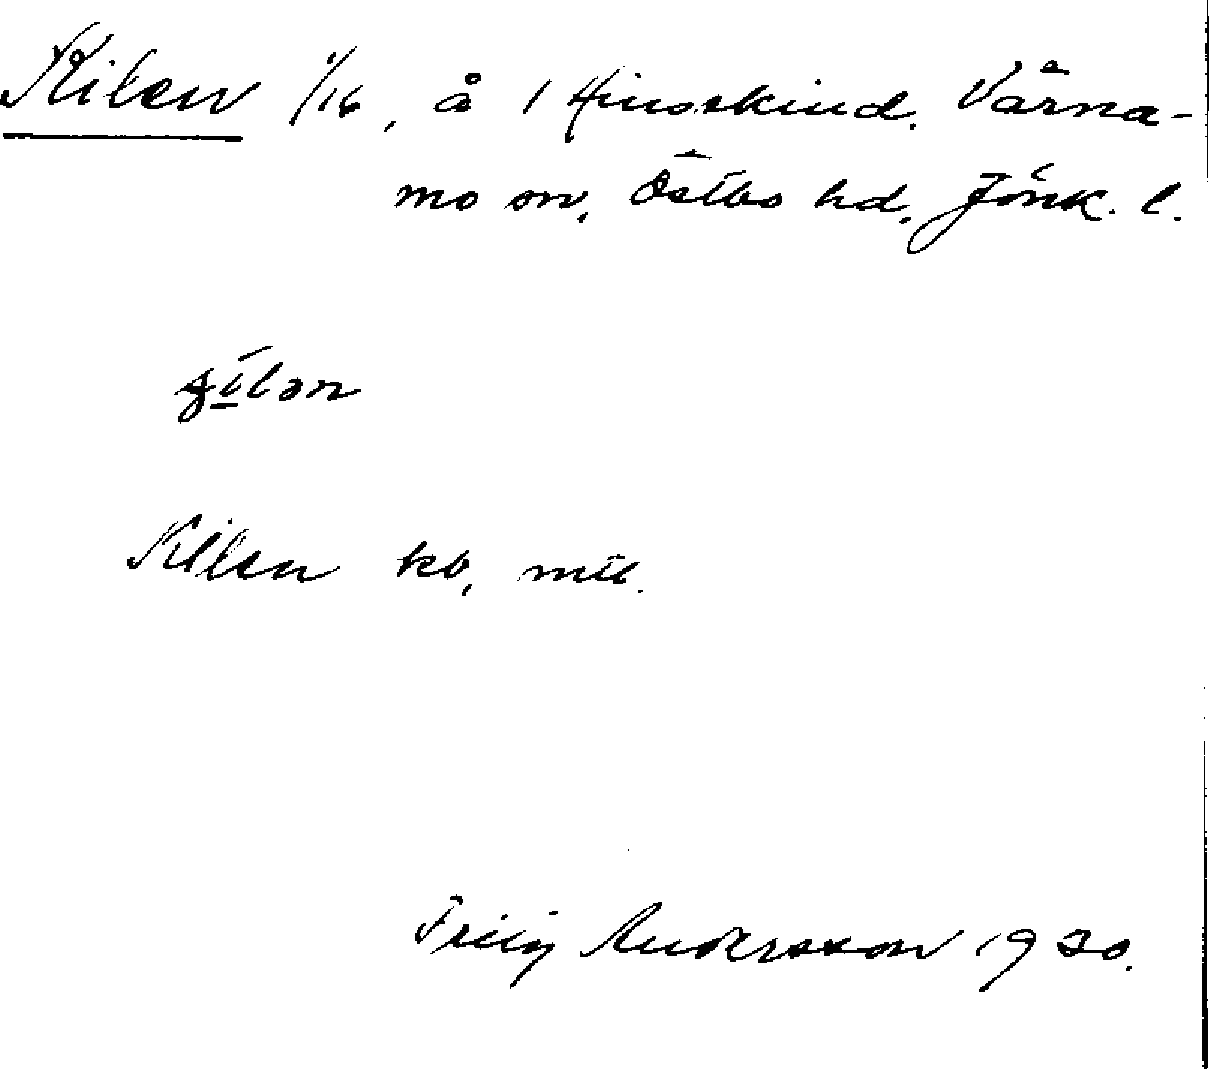 Kilen 1/16, å 1 Hinsekind. Värna-
mo sn, Östbo hd, Jönk. l.
Kilen kb, mtl.
Andersson 1930.